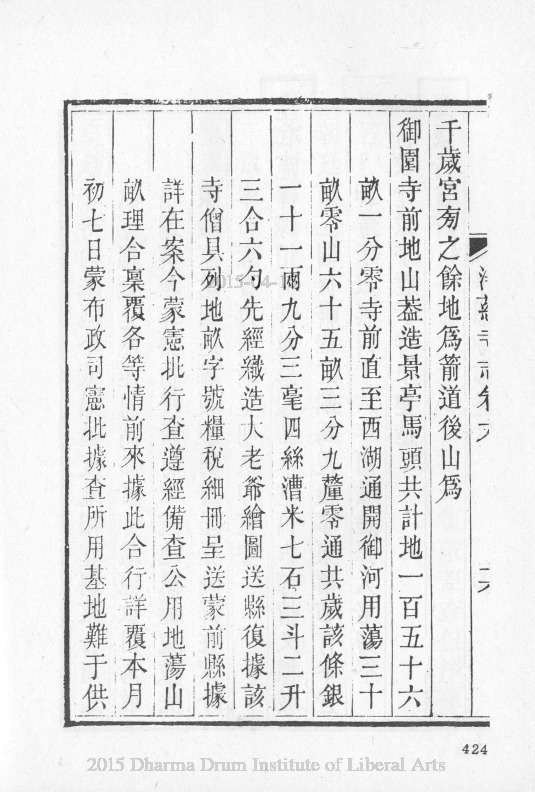 千歲宮旁之餘地爲箭道後山爲
御園寺前地山蓋造景亭馬頭共計地一百五十六
畝一分零寺前直至西湖通開御河用蕩三十
畝零山六十五畝三分九釐零通共歲該條銀
一十一兩九分三毫四絲漕米七石三斗二升
三合六勺先經織造大老爺繪圖送縣復據該
寺僧具列地畝字號糧稅細冊呈送蒙前縣據
詳在案今蒙憲批行查遵經備查公用地蕩山
畝理合稟覆各等情前來據此合行詳覆本月
初七日蒙布政司憲批據查所用基地難于供
424
2015 Dharma Drum Institute of Liberal Arts